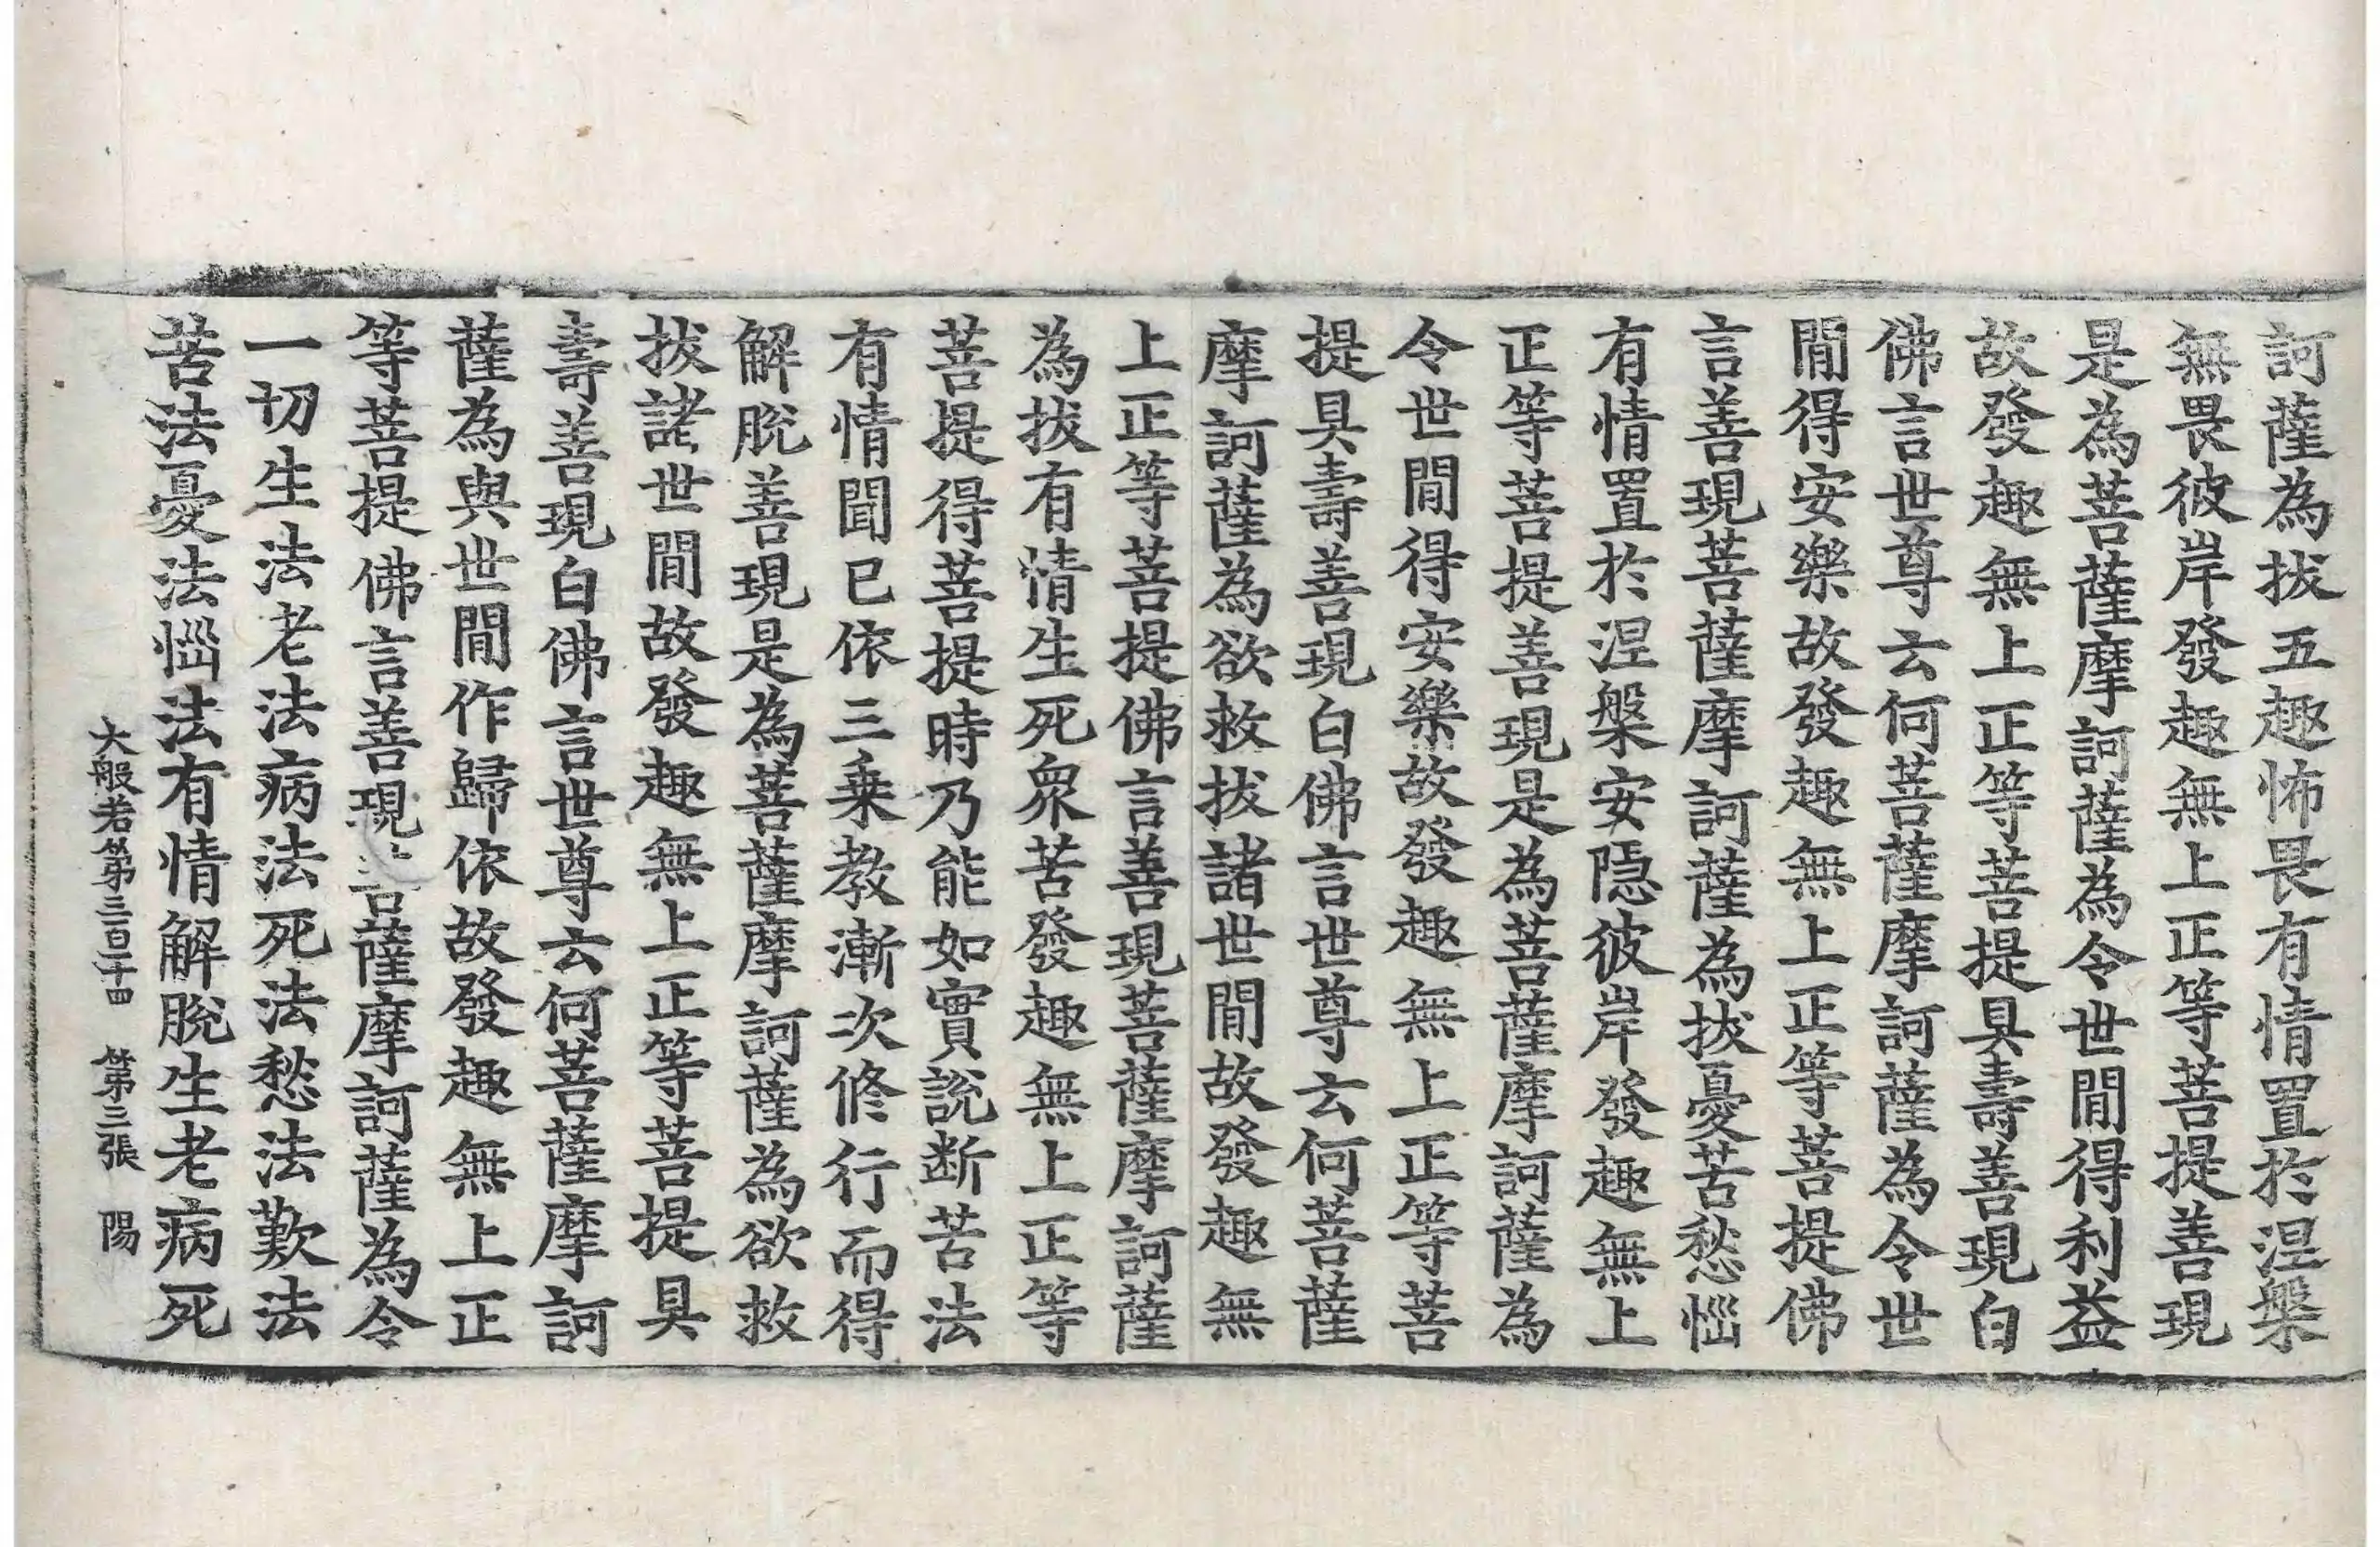 訶薩為拔五趣怖畏有情置於涅槃
無畏彼岸發趣無上正等菩提善現
是為菩薩摩訶薩為令世間得利益
故發趣無上正等菩提具壽善現白
佛言世尊云何菩薩摩訶薩為令世
間得安樂故發趣無上正等菩提佛
言善現菩薩摩訶薩為拔憂苦愁惱
有情置於涅槃安隱彼岸發趣無上
正等菩提善現是為菩薩摩訶薩為
令世間得安樂故發趣無上正等菩
提具壽善現白佛言世尊云何菩薩
摩訶薩為欲救拔諸世間故發趣無
上正等菩提佛言善現菩薩摩訶薩
為拔有情生死眾苦發趣無上正等
菩提得菩提時乃能如實說断苦法
有情聞已依三乗教漸次修行而得
解脫善現是為菩薩摩訶薩為欲救
拔諸世間故發趣無上正等菩提具
壽善現白佛言世尊云何菩薩摩訶
薩為與世間作歸依故發趣無上正
等菩提佛言善現菩薩摩訶薩為令
一切生法老法病法死法愁法歎法
苦法憂法惱法有情解脫生老病死
大般若第三百二十四 第三張 陽